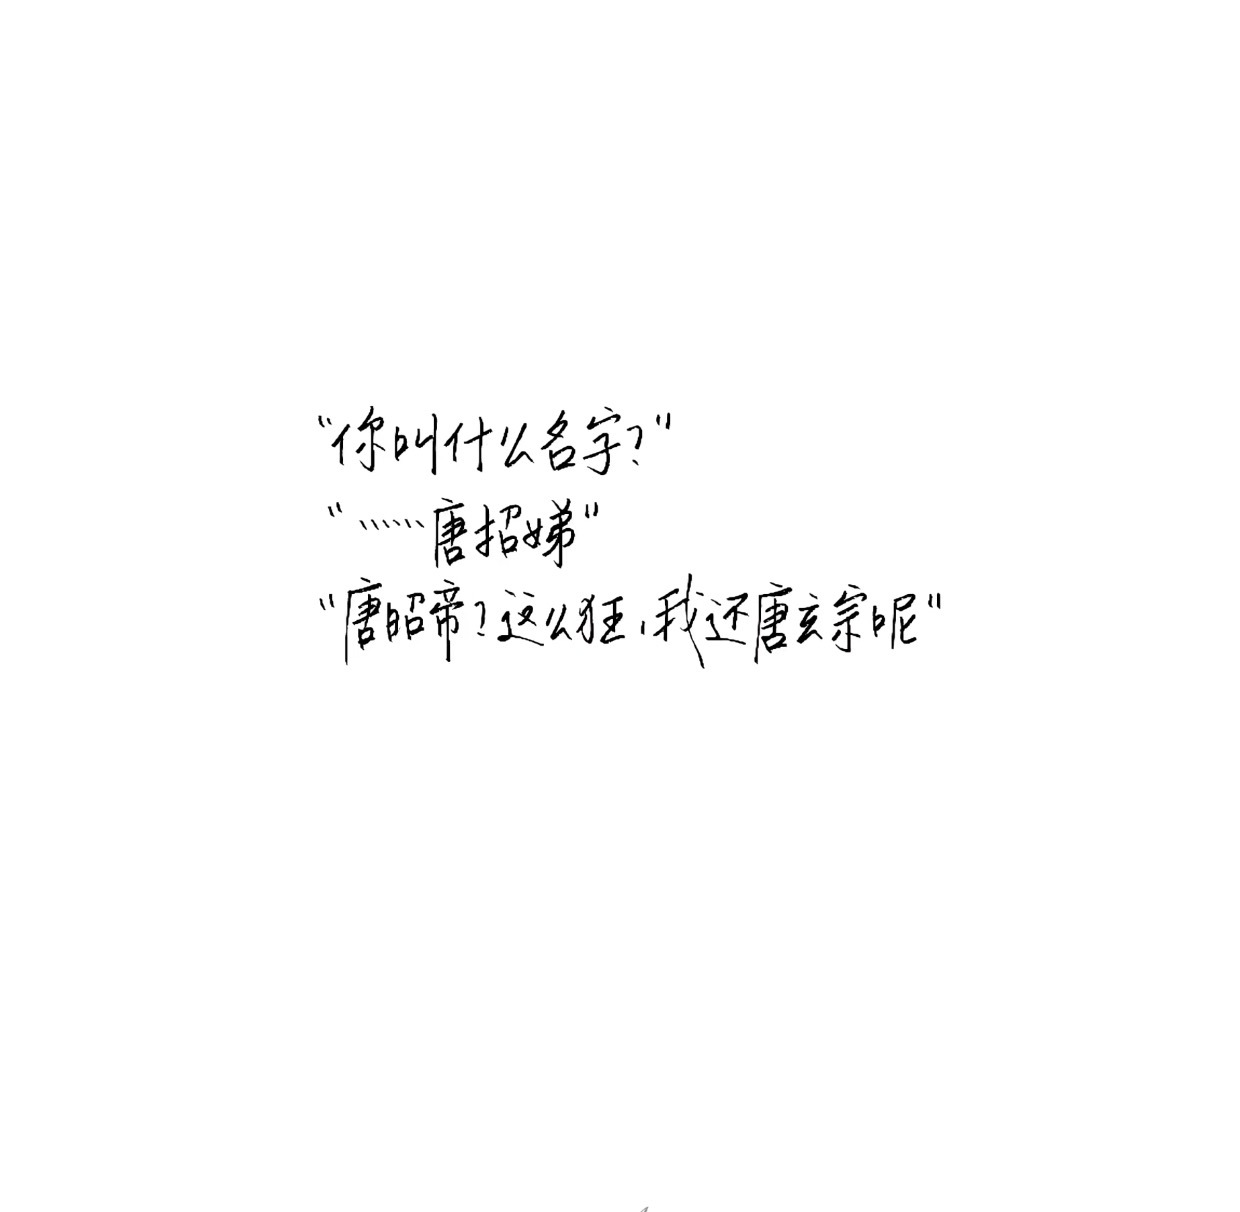 “你叫什么名字？”
“……唐招娣”
“唐昭帝？这么狂，我还唐玄宗呢”